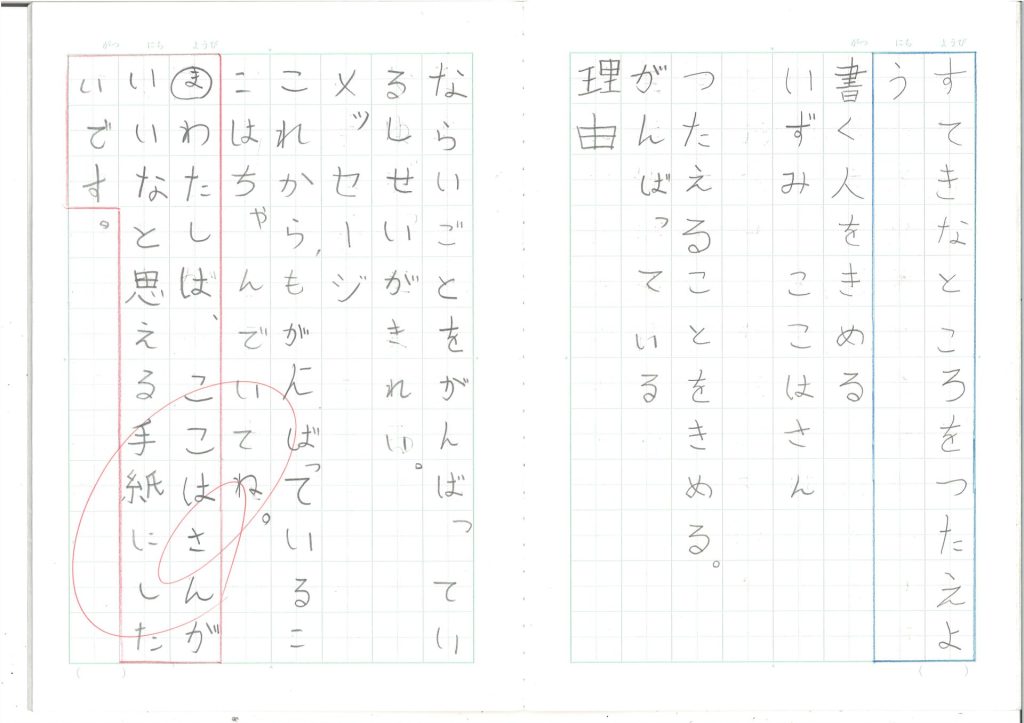 がつ にち ようび
すてきなところをつたえよ
う
書く人をきめる
いずみ ここはさん
つたえることをきめる。
がんばっている
理由
がつ にち ようび
ならいごとをがんばってい
るしせいがきれい。
メッセージ
これから、もがんばっているこ
こはちゃんでいてね。
まわたしは、ここはさんが
いいなと思える手紙にした
いです。